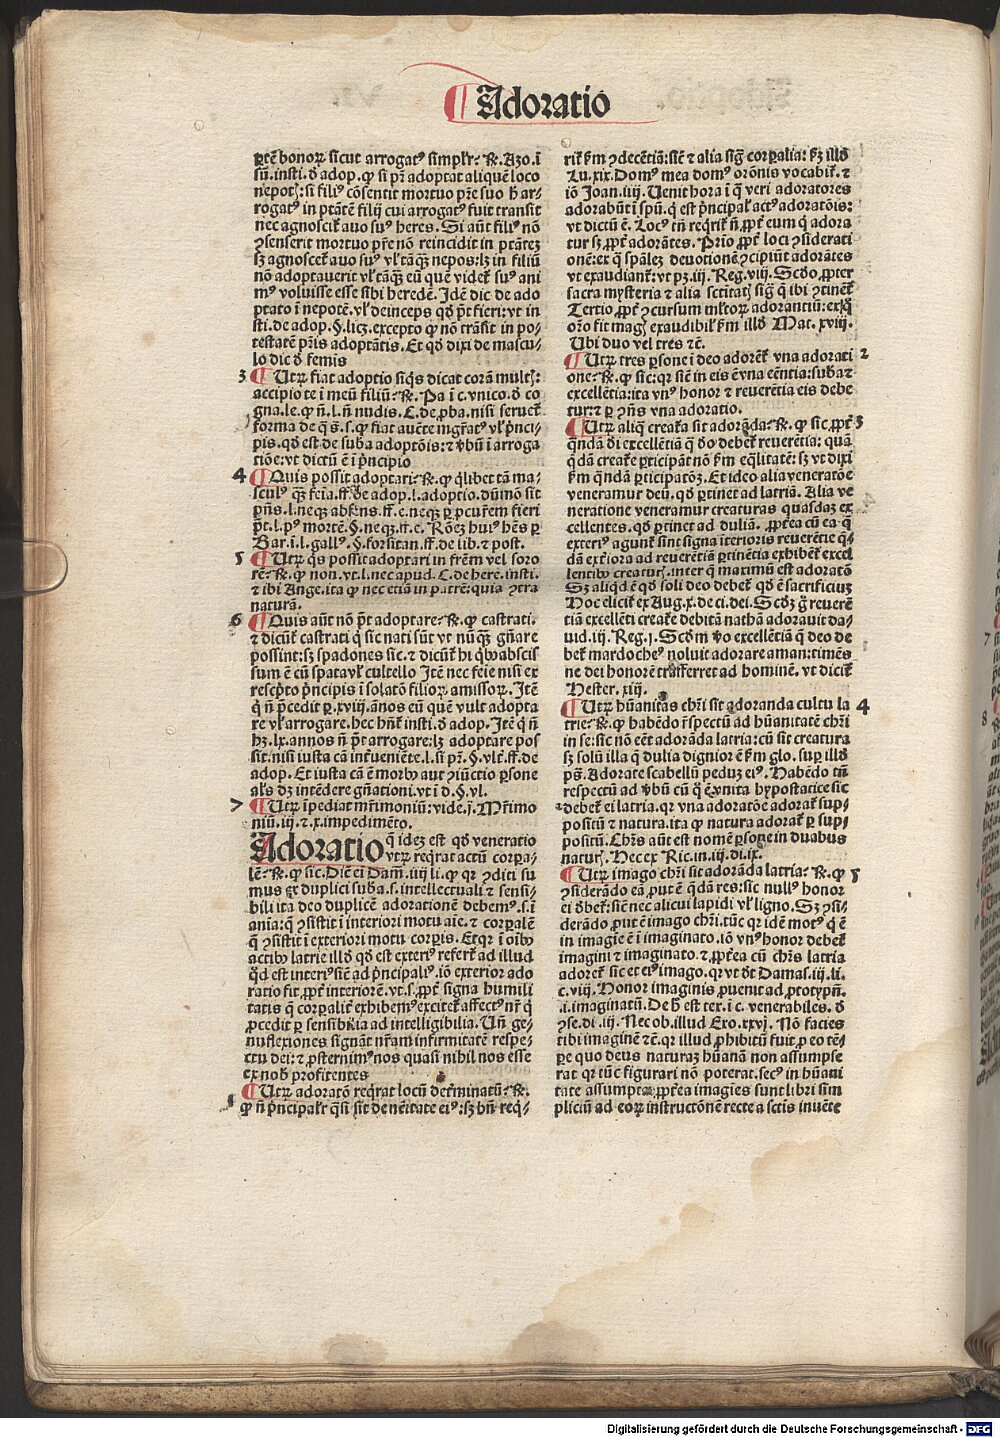 ¶ Adoratio
ptē honoꝝ sicut arrogatꝰ simplr̄: ℞. Azo.ī
sū.insti.ō adop. ꝙ si pr̄ adoptat aliquē loco
nepotꝭ: si filiꝰ cōsentit mortuo pr̄e suo h̄ ar-
rogatꝰ in ptātē filij cui arrogatꝰ fuit transit
nec agnoscit̄ auo suꝰ heres. Si aūt filiꝰ nō
ꝯsenserit mortuo pr̄e nō reincidit in ptātez
sꝫ agnoscet̄ auo suꝰ vl̓ tāꝗ̄ nepos: lꝫ in filiū
nō adoptauerit vl̓ tāꝗ̄ eū quē videt̄ suꝰ ani
mꝰ voluisse esse sibi heredē. Idē dic de ado
ptato ī nepotē. vl̓ deinceps qd̄ p̄t fieri: vt in
sti.de adop. §. licꝫ. excepto ꝙ nō trāsit in po-
testatē pr̄is adoptātis. Et qd̄ dixi de mascu-
lo dic ō femis
3 ¶ Utꝝ fiat adoptio siqs dicat corā multꝭ:
accipio te ī meū filiū: ℞. Pa ī c. vnico. ō co
gna.le. ꝙ n̄. l. n̄ nudis. C. de ꝓba. nisi seruet̄
forma de q̄ s̄. s. ꝙ fiat auctē mgr̄atꝰ vl̓ pnci-
pis. qd̄ est de suba adoptōis: ⁊ vbū ī arroga
tiōe: vt dictū ē ī pncipio
4 ¶ Quis possit adoptari: ℞. ꝙ qlibet tā ma-
sculꝰ ꝗ̄ feīa. ff. de adop. l. adoptio. dūmō sit
pn̄s. l. neqꝫ absens. ff. e. neqꝫ ꝑ ꝓcurem fieri
p̄t. l. pꝰ mortē. §. neqꝫ. ff. e. Rōeꝫ huiꝰ hēs ꝑ
Bar. ī. l. gallꝰ. §. forsitan. ff. de lib. ⁊ post.
5 ¶ Utꝝ qs possit adoptari in frēm vel soro
rē: ℞. ꝙ non. vt. l. nec apud. C. de here. insti.
⁊ ibi Ange. ita ꝙ nec etiā in patrē: quia ꝯtra
naturā.
6 ¶ Quis aūt nō p̄t adoptare: ℞. ꝙ castrati.
⁊ dicūt̄ castrati q̄ sic nati sūt vt nūꝗ̄ gn̄are
possint: sꝫ spadones sic. ⁊ dicūt̄ hi qbꝰ abscis
sum ē cū spatavl̓ cultello Itē nec feie nisi ex
rescpto pncipis ī solatō filioꝝ amissoꝝ. Itē
q̄ n̄ p̄cedit ꝑ. xviij. ānos eū quē vult adopta
re vl̓ arrogare. hec hn̄t̄ insti. ō adop. Itē q̄ n̄
hꝫ. lx. annos n̄ p̄t arrogare: lꝫ adoptare pos
sit. nisi iusta cā interueniēte. l. si pr̄. §. vlt̄. ff. de
adop. Et iusta cā ē morbꝰ aut ꝯiūctio ꝑsone
al̓s dꝫ intēdere gn̄ationi. vt ī d. §. vl.
7 ¶ Utꝝ īpediat mr̄imoniū: vide. ī. Mr̄imo
niū. iij. ⁊. x. impedimēto.
Adoratio q̄ ideꝫ est qd̄ veneratio
vtꝝ reqrat actū corpa-
lē: ℞. ꝙ sic. Dic̄ ei Dam̄. iiij li. ꝙ qr ꝯditi su
mus ex duplici suba. s. intellectuali ⁊ sensi-
bili ita deo duplicē adorationē debemꝰ. s. ī
ania: q̄ ꝯsistit ī interiori motu aīe. ⁊ corpalē
q̄ ꝯsistit ī exteriori motu corpis. Et qr ī oībꝰ
actibꝰ latrie illd̄ qd̄ est exteriꝰ refert̄ ad illud
qd̄ est interiꝰ sic̄ ad pncipaliꝰ. iō exterior ado
ratio fit ꝓpt̄ interiorē. vt. s. ꝓpt̄ signa humili
tatis q̄ corpalit̄ exhibemꝰ excitet̄ affectꝰ nr̄ q̄
ꝓcedit ꝑ sensibilia ad intelligibilia. Un̄ ge-
nuflexiones signāt nr̄am infirmitatē respe-
ctu dei: ⁊ ꝓsternimꝰ nos quasi nihil nos esse
ex nob̄ profitentes
1 ¶ Utꝝ adoratō reqrat locū determinatū: ℞.
ꝙ n̄ pncipalr̄ qsi sit de nc̄itate eiꝰ: sꝫ bn̄ req-
rit̄ fm ꝯdecētiā: sic̄ ⁊ alia sig̅ corpalia: fꝫ illō
Lu. xix. Domꝰ mea domꝰ orōnis vocabit̄. ⁊
iō Joan. iiij. Uenit hora ī q̄ veri adoratores
adorabūt ī spū. q̄ est pncipal̓ actꝰ adoratōis:
vt dictū ē. Locꝰ tn̄ reqrit̄ n̄ ꝓpt̄ eum q̄ adora
tur sꝫ ꝓpt̄ adorātes. Prīo ꝓpt̄ loci ꝯsiderati
onē: ex q̄ spālez deuotionē ꝯcipiūt adorātes
vt exaudiant̄: vt pꝫ. iij. Reg. viij. Scd̄o, ꝓpter
sacra mysteria ⁊ alia sctitatꝭ sig̅ q̄ ibi ꝯtinēt̄
Tertio ꝓpt̄ ꝯcursum ml̓torꝝ adorantiū: ex q̄
orō fit magꝭ exaudibil̓ fm illō Mat. xviij.
Ubi duo vel tres ⁊c̄.
¶ Utꝝ tres ꝑsone ī deo adorēt̄ vna adorati 2
one: ℞. ꝙ sic: qr sic̄ in eis ē vna eēntia: suba ⁊
excellētia: ita vnꝰ honor ⁊ reuerētia eis debe
tur: ⁊ ꝑ ꝯn̄s vna adoratio.
¶ Utꝝ aliq̄ creat̄a sit adorāda: ℞. ꝙ sic, ꝓpt̄ 3
qndā di excellētiā q̄ do debet̄ reuerētia: quā
qdā creat̄e ꝑticipāt nō fm eq̄litatē: sꝫ vt dixi
fm qndā ꝑticipatōꝫ. Et ideo alia veneratōe
veneramur deū. qd̄ ꝑtinet ad latriā. Alia ve
neratione veneramur creaturas quasdaꝫ ex
cellentes. qd̄ ꝑtinet ad duliā. ꝓpt̄ea cū ea q̄
exteriꝰ agunt̄ sint signa īterioris reuerētie q-
dā ext̄iora ad reuerētiā ꝑtinētia exhibēt̄ excel
lentibꝰ creaturꝭ. inter q̄ maximū est adoratō
Sꝫ aliqd̄ ē qd̄ soli deo debet̄ qd̄ ē sacrificiuꝫ
Hoc elicit̄ ex Aug. x. de ci. dei. Scd̄ꝫ g̊ reuerē
tiā excellēti creat̄e debitā nathā adorauit da-
uid. iij. Reg. j. Scd̄m vo excellētiā q̄ deo de
bet̄ mardocheꝰ noluit adorare aman: timēs
ne dei honorē trāsferret ad hominē. vt dicit̄
Hester. xiij.
¶ Utꝝ hūanitas chr̄i sit adoranda cultu la 4
trie: ℞. ꝙ habēdo r̄spectū ad hūanitatē chr̄i
in se: sic nō eēt adorāda latria: cū sit creatura
sꝫ solū illa q̄ dulia dignior ē fm glo. suꝑ illō
ps̄. Adorate scabellū peduꝫ eiꝰ. Habēdo tn̄
respectū ad vbū cū q̄ ē vnita hypostatice sic
debet̄ ei latria. qr vna adoratōe adorat̄ sup-
positū ⁊ natura. ita ꝙ natura adorat̄ ꝑ sup-
positū. Chrs̄ aūt est nomē ꝑsone in duabus
naturꝭ. Hec ex Ric. in. iij. di. ix.
¶ Utꝝ imago chr̄i sit adorāda latria: ℞. ꝙ 5
ꝯsiderādo eā ꝓut ē qdā res: sic nullꝰ honor
ei debet̄: sic̄ nec alicui lapidi vl̓ ligno. Sꝫ ꝯsi-
derādo ꝓut ē imago chr̄i. tūc qr idē motꝰ q̄ ē
in imagīe ē ī imaginato. iō vnꝰ honor debet̄
imagini ⁊ imaginato. ⁊ ꝓpt̄ea cū chrs̄ latria
adoret̄ sic et eiꝰ imago. qr vt dt̄ Damas. iij. li.
c. viij. Honor imaginis ꝓuenit ad ꝓtotypū.
.i. imaginatū. De h̄ est tex. ī c. venerabiles. ō
ꝯse. di. iij. Nec ob. illud Exo. xxvj. Nō facies
tibi imaginē ⁊c̄. qr illud ꝓhibitū fuit ꝓ eo tē-
ꝑe quo deus naturaꝫ hūanā non assumpse
rat qr tūc figurari nō poterat. secꝰ in hūani
tate assumpta. ꝓpt̄ea imagīes sunt libri sim
pliciū ad eoꝝ instructōnē recte a sctis inuēte
Digitalisierung gefördert durch die Deutsche Forschungsgemeinschaft - DFG